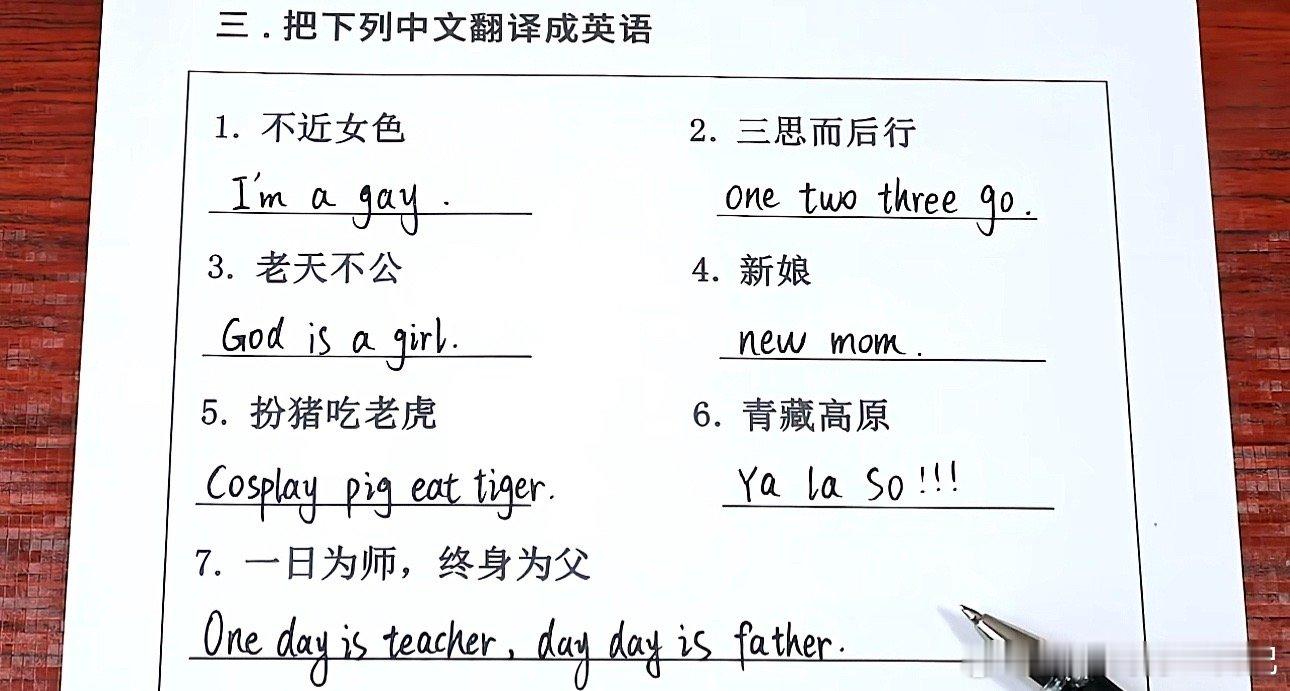 三．把下列中文翻译成英语
1. 不近女色
2. 三思而后行
I'm a gay.
one two three go.
3. 老天不公
4. 新娘
God is a girl.
new mom.
5. 扮猪吃老虎
6. 青藏高原
Cosplay pig eat tiger.
Ya la so!!!
7. 一日为师，终身为父
One day is teacher, day day is father.